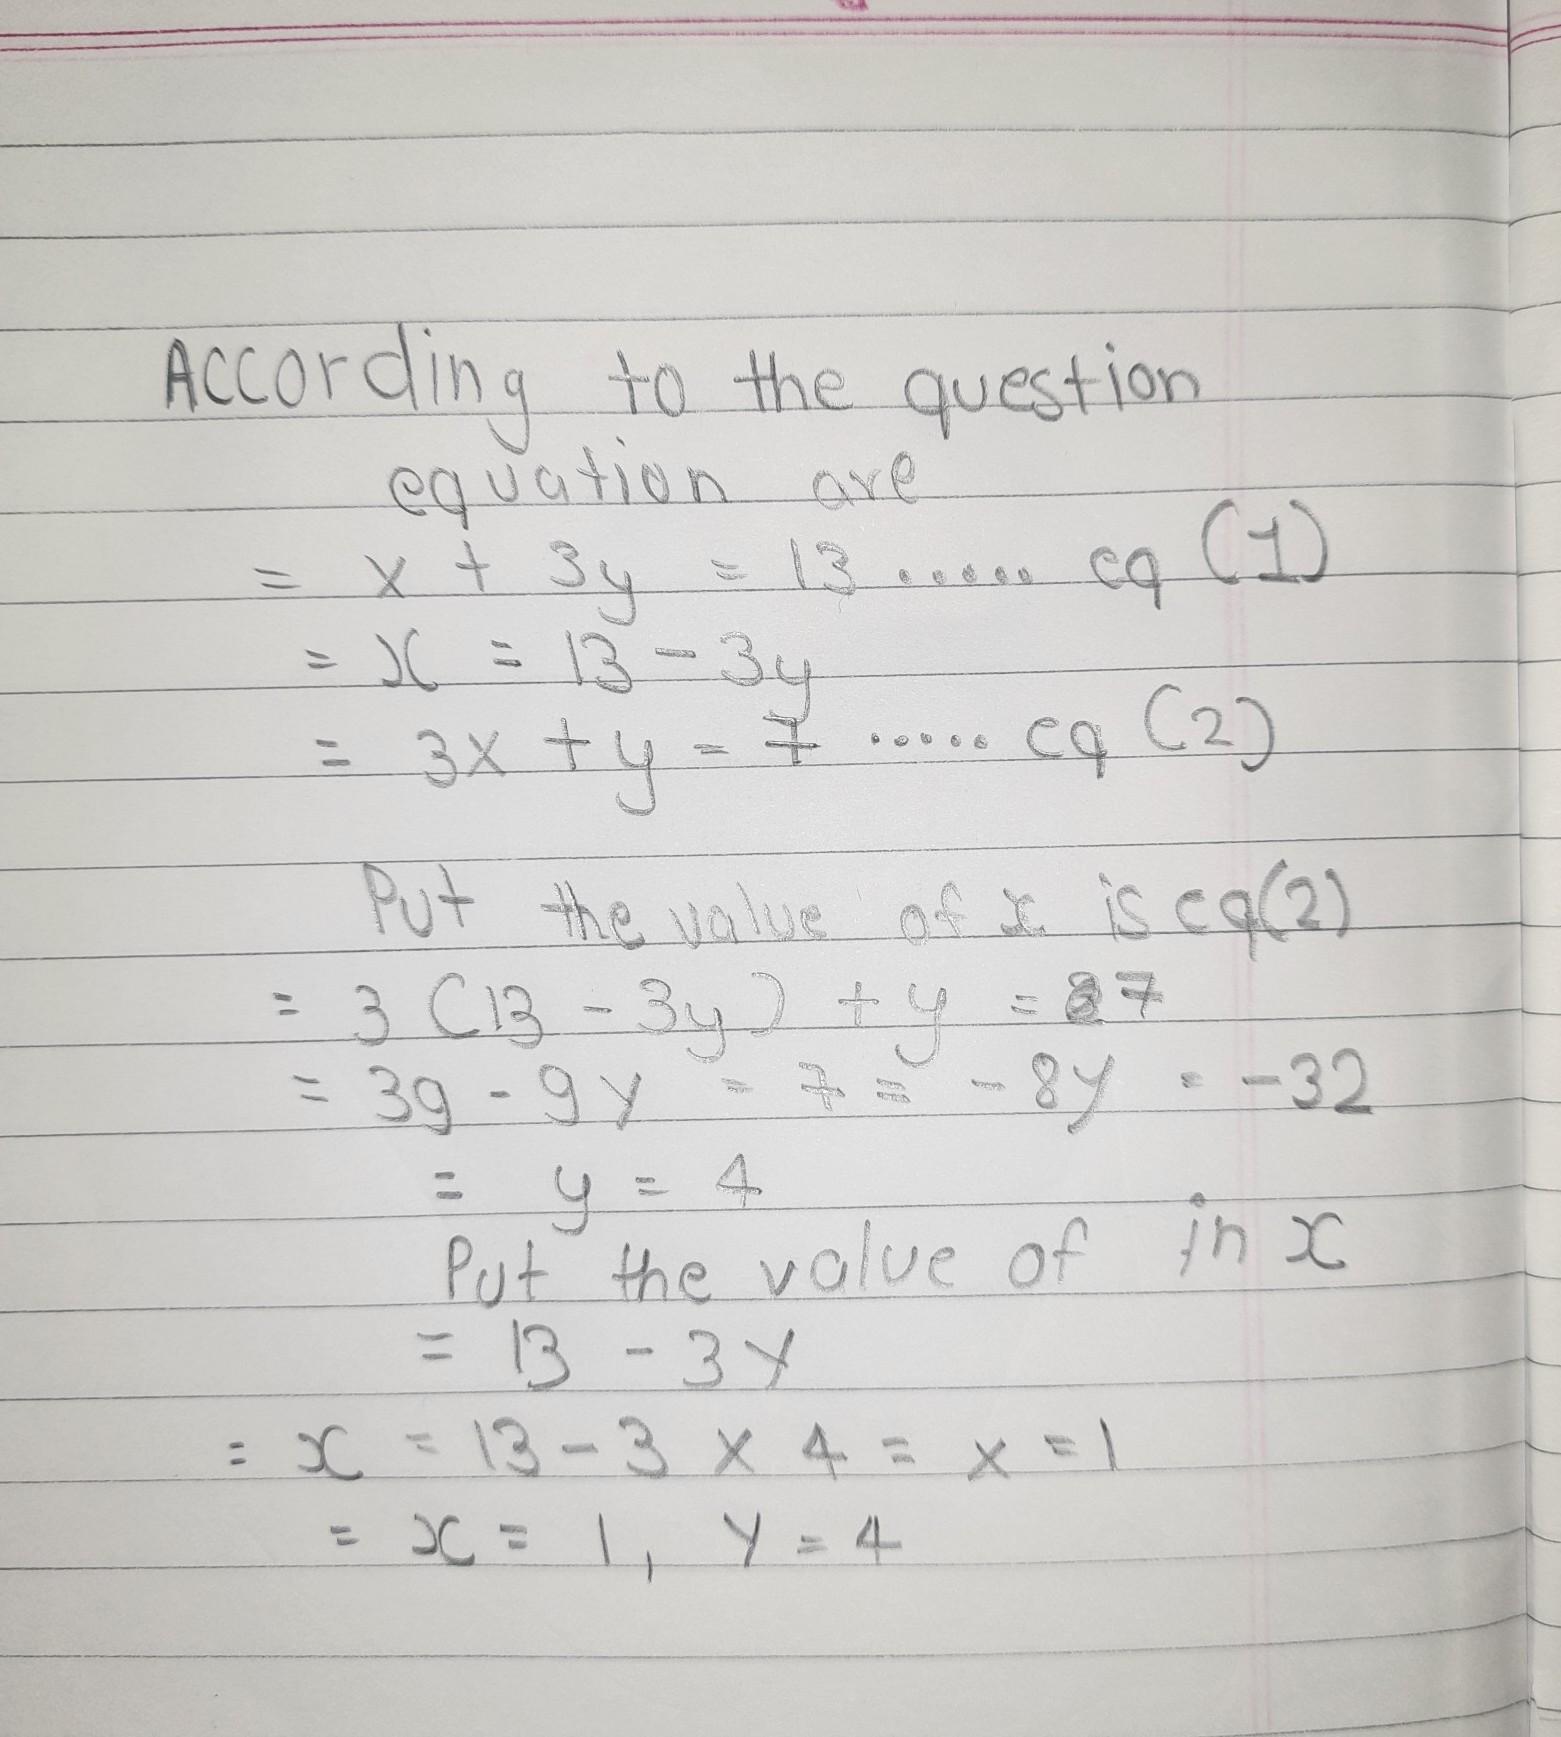 According to the question
equation are
= x + 3y = 13 ..... eq (1)
= x = 13 - 3y
= 3x + y = 7 ..... eq (2)
Put the value of x is eq(2)
= 3 (13 - 3y) + y = 7
= 39 - 9y = 7 = -8y = -32
= y = 4
Put the value of in x
= 13 - 3y
= x = 13 - 3 x 4 = x = 1
= x = 1, y = 4